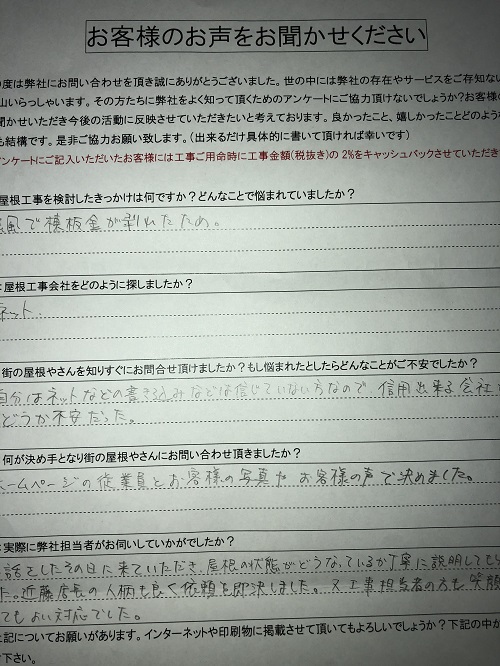 お客様のお声をお聞かせください
の度は弊社にお問い合わせを頂き誠にありがとうございました。世の中には弊社の存在やサービスをご存知ない
山いらっしゃいます。その方たちに弊社をよく知って頂くためのアンケートにご協力頂けないでしょうか?お客様の
聞かせいただき今後の活動に反映させていただきたいと考えております。良かったこと、嬉しかったことどのよう
も結構です。是非ご協力お願い致します。(出来るだけ具体的に書いて頂ければ幸いです)
アンケートにご記入いただいたお客様には工事ご用命時に工事金額(税抜き)の 2%をキャッシュバックさせていただき
屋根工事を検討したきっかけは何ですか?どんなことで悩まれていましたか?
風で棟板金が剥れたため。
屋根工事会社をどのように探しましたか?
ネット.
街の屋根やさんを知りすぐにお問合せ頂けましたか?もし悩まれたとしたらどんなことがご不安でしたか?
自分はネットなどの書き込みなどは信じていない方なので、信用出来る会社
どうか不安だった。
何が決め手となり街の屋根やさんにお問い合わせ頂きましたか?
ホームページの従業員とお客様の写真やお客様の声で決めました。
実際に弊社担当者がお伺いしていかがでしたか?
話をしたその日に来ていただき、屋根の状態がどうなっているか丁寧に説明しても
た。近藤店長の人柄も良く依頼を即決しました。又工事担当者の方も笑顔
てもよい対応でした。
上記についてお願いがあります。インターネットや印刷物に掲載させて頂いてもよろしいでしょうか?下記の中か
下さい。